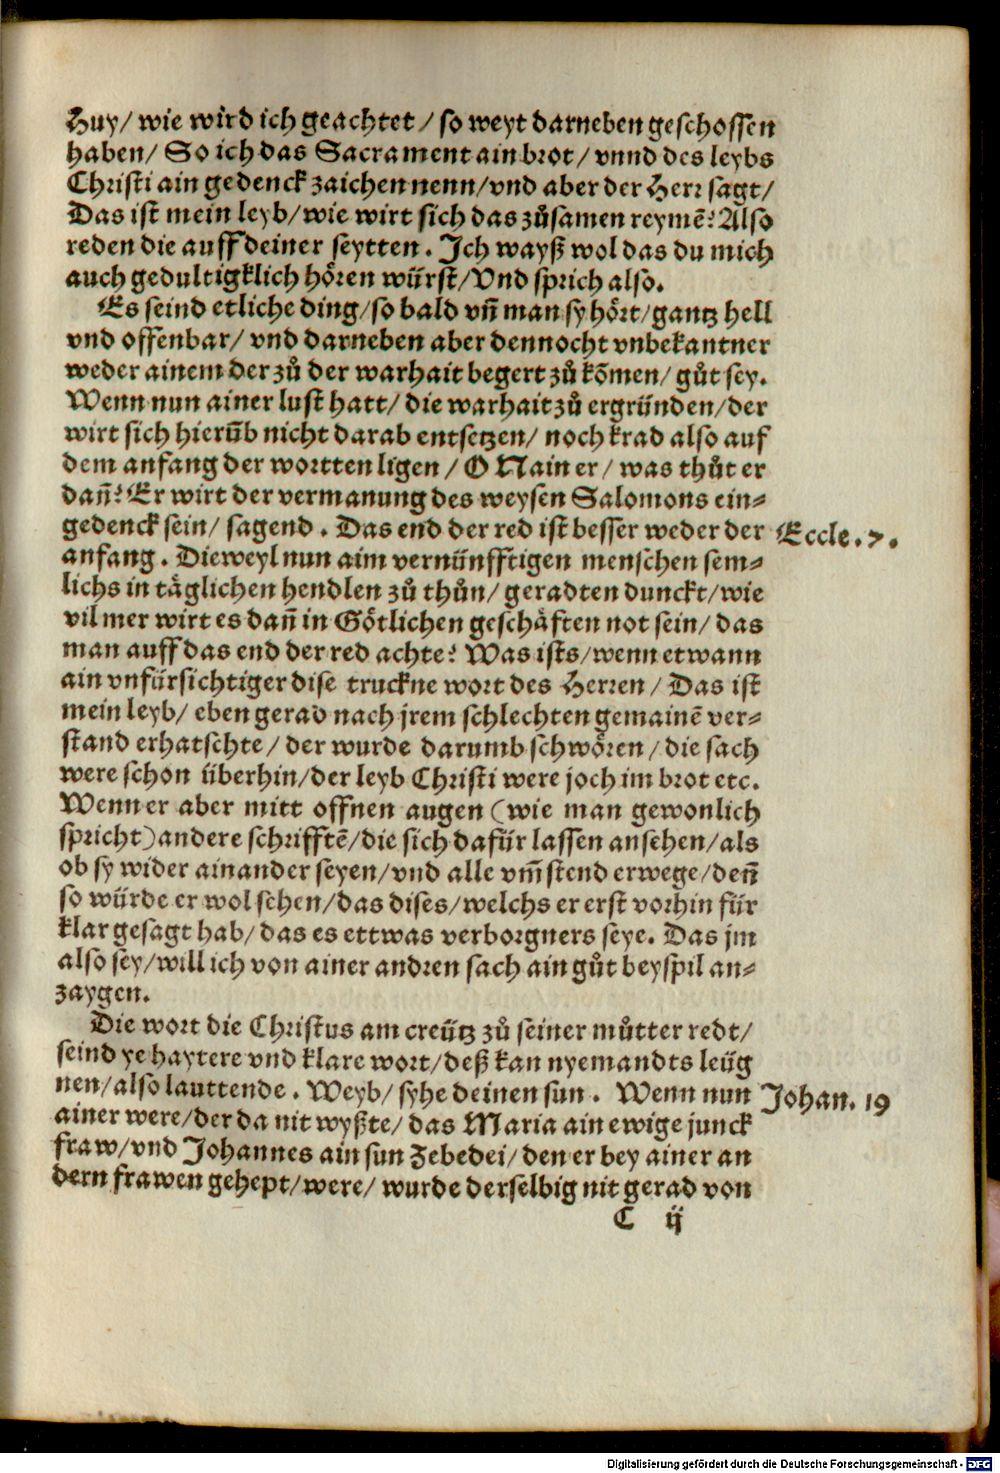 Huy/ wie wird ich geachtet/ so weyt darneben geschossen
haben/ So ich das Sacrament ain brot/ vnnd des leybs
Christi ain gedenck zaichen nenn/ vnd aber der Herr sagt/
Das ist mein leyb/ wie wirt sich das zůsamen reymē? Also
reden die auff deiner seytten. Ich wayß wol das du mich
auch gedultigklich hören würst/ Vnd sprich also.
Es seind etliche ding/ so bald vñ man sy hört/ gantz hell
vnd offenbar/ vnd darneben aber dennocht vnbekantner
weder ainem der zů der warhait begert zů kōmen/ gůt sey.
Wenn nun ainer lust hatt/ die warhait zů ergründen/ der
wirt sich hierūb nicht darab entsetzen/ noch krad also auf
dem anfang der wortten ligen/ O Nain er/ was thůt er
dañ? Er wirt der vermanung des weysen Salomons ein=
gedenck sein/ sagend. Das end der red ist besser weder der
Eccle. 7.
anfang. Dieweyl nun aim vernünfftigen menschen sem=
lichs in täglichen hendlen zů thůn/ geradten dunckt/ wie
vil mer wirt es dañ in Götlichen geschäften not sein/ das
man auff das end der red achte? Was ists/ wenn etwann
ain vnfürsichtiger dise truckne wort des Herren/ Das ist
mein leyb/ eben gerad nach jrem schlechten gemainē ver=
stand erhatschte/ der wurde darumb schwören/ die sach
were schon überhin/ der leyb Christi were joch im brot etc.
Wenn er aber mitt offnen augen (wie man gewonlich
spricht) andere schrifftē/ die sich dafür lassen ansehen/ als
ob sy wider ainander seyen/ vnd alle vm̄stend erwege/ deñ
so würde er wol sehen/ das dises/ welchs er erst vorhin für
klar gesagt hab/ das es ettwas verborgners seye. Das jm
also sey/ will ich von ainer andren sach ain gůt beyspil an=
zaygen.
Die wort die Christus am creütz zů seiner můtter redt/
seind ye haytere vnd klare wort/ deß kan nyemandts leüg
nen/ also lauttende. Weyb/ syhe deinen sun. Wenn nun
Johan. 19
ainer were/ der da nit wyßte/ das Maria ain ewige junck
fraw/ vnd Johannes ain sun Zebedei/ den er bey ainer an
dern frawen gehept/ were/ wurde derselbig nit gerad von
C ij
Digitalisierung gefördert durch die Deutsche Forschungsgemeinschaft - DFG